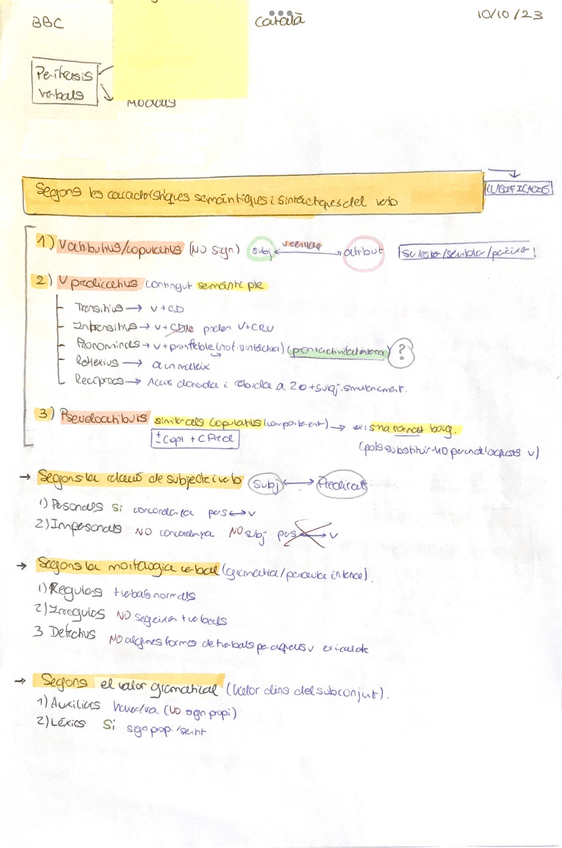 BBC
Català
10/10/23
Perífrasis
verbals
Modals
Segons les característiques semàntiques i sintàctiques del verb
CLASSIFICACIÓ
1) V atributius/copulatius (NO sign) subj atribut
2) V predicatius contingut semàntic ple
Transitius → V + CD
Intransitius → V + poden V + CRV
Pronominals → V + pron feble (no f. sintàctica) ?
Reflexius → a un mateix
Recíprocs → Acció donada i rebuda a 2 o + subj. simultàniament.
3) Pseudocopulatius similar als copulatius → ex: s'ha tornat boig.
± Copi + C Pred
(pots substituir-ho per un d'aquests v)
→ Segons la relació de subjecte i verb subj ↔ Predicat
1) Personals Sí concordança pers ↔ v
2) Impersonals NO concordança NO subj pers v
→ Segons la morfologia verbal (gramatical/paraula interna).
1) Regulars + verbals normals
2) Irregulars NO segueixen + verbals
3 Defectius NO algunes formes de
→ Segons el valor gramatical (valor dins del subconjunt).
1) Auxiliars haver/va (NO sign propi)
2) Lèxics Sí sign prop